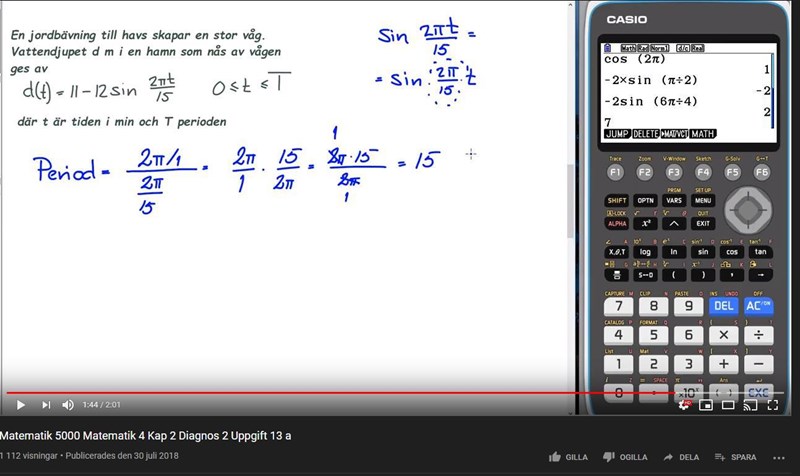 En jordbävning till havs skapar en stor våg.
Vattendjupet d m i en hamn som nås av vågen
ges av
d(t) = 11 - 12 sin 2πt/15 0 ≤ t ≤ T
där t är tiden i min och T perioden
sin 2πt/15 =
= sin 2π/15 t
Period = (2π/1)/(2π/15) = 2π/1 · 15/2π = 2π · 15/2π = 15
1
1
CASIO
Math Rad Norm1 d/c Real
cos (2π)
1
-2×sin (π÷2)
-2
-2sin (6π÷4)
2
7
JUMP DELETE ►MAT/VCT MATH
Trace Zoom V-Window Sketch G-Solv G↔T
F1 F2 F3 F4 F5 F6
PRGM SET UP
SHIFT OPTN VARS MENU
A-LOCK QUIT
ALPHA x² ^ EXIT
X,θ,T log ln sin cos tan
S↔D ( ) , →
CAPTURE CLIP PASTE INS UNDO OFF
7 8 9 DEL AC/ON
CATALOG FORMAT
4 5 6 × ÷
List Mat
1 2 3 + −
0 . ×10 (−) EXE
1:44 / 2:01
HD
Matematik 5000 Matematik 4 Kap 2 Diagnos 2 Uppgift 13 a
1 112 visningar • Publicerades den 30 juli 2018
GILLA OGILLA DELA SPARA